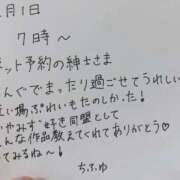 月1日
7時～
ネット予約の紳士さま
んぐでまったり過ごせてうれしい
い場ぷれいもたのしかった!
いやみす。好き同盟として
んな作品教えてくれてありがとう♡
てみるね～!
ちふゆ